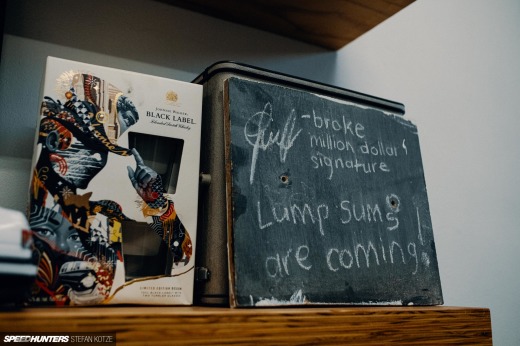 JOHNNIE WALKER
BLACK LABEL
Blended Scotch Whisky
LIMITED EDITION DESIGN
-broke
million dollar
signature
Lump sums
are coming!
SPEEDHUNTERS STEFAN KOTZE